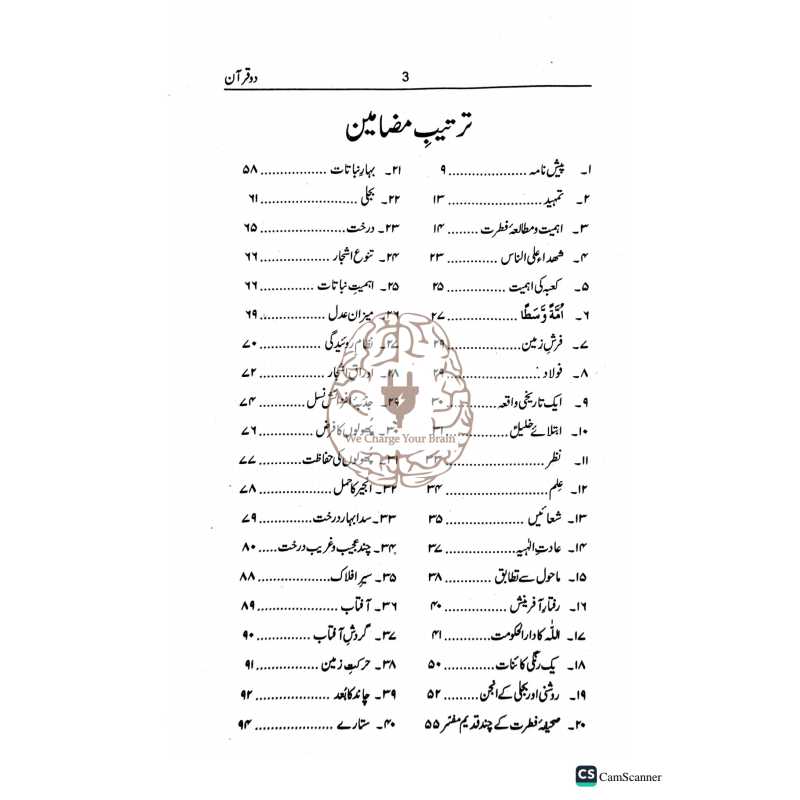 دو قرآن 3
ترتیبِ مضامین
۱۔ پیش نامہ .................... ۹
۲۔ تمہید ........................ ۱۳
۳۔ اہمیت و مطالعۂ فطرت ........ ۱۴
۴۔ شھداء علی الناس ............. ۲۳
۵۔ کعبہ کی اہمیت ............... ۲۵
۶۔ اُمَّةً وَّسَطًا .................. ۲۷
۷۔ فرشِ زمین ................... ۲۹
۸۔ فولاد ........................ ۲۹
۹۔ ایک تاریخی واقعہ ............. ۳۰
۱۰۔ ابتلائے خلیلؑ ................ ۳۱
۱۱۔ نظر ......................... ۳۳
۱۲۔ عِلم .......................... ۳۴
۱۳۔ شعائیں .................... ۳۵
۱۴۔ عادتِ الٰہیہ .................. ۳۷
۱۵۔ ماحول سے تطابق ............ ۳۸
۱۶۔ رفتارِ آفرینش ................ ۴۰
۱۷۔ اللہ کا دارالحکومت ............ ۴۱
۱۸۔ یک رنگی کائنات ............. ۵۰
۱۹۔ روشنی اور بجلی کے انجن ......... ۵۲
۲۰۔ صحیفۂ فطرت کے چند قدیم مفسّر ۵۵
۲۱۔ بہارِ نباتات ................. ۵۸
۲۲۔ بجلی ......................... ۶۱
۲۳۔ درخت ...................... ۶۵
۲۴۔ تنوعِ اشجار .................. ۶۶
۲۵۔ اہمیتِ نباتات .............. ۶۶
۲۶۔ میزانِ عدل ................. ۶۹
۲۷۔ نظامِ روئیدگی ................ ۷۰
۲۸۔ اوراقِ اشجار ................. ۷۲
۲۹۔ جذبۂ افزائشِ نسل ............ ۷۴
۳۰۔ پھولوں کا فرض .............. ۷۶
۳۱۔ پھولوں کی حفاظت ........... ۷۷
۳۲۔ انجیر کا حمل .................. ۷۸
۳۳۔ سدا بہار درخت .............. ۷۹
۳۴۔ چند عجیب و غریب درخت ..... ۸۰
۳۵۔ سیرِ افلاک ................... ۸۸
۳۶۔ آفتاب ..................... ۸۹
۳۷۔ گردشِ آفتاب .............. ۹۰
۳۸۔ حرکتِ زمین ................ ۹۱
۳۹۔ چاند کا بُعد ................... ۹۲
۴۰۔ ستارے .................... ۹۴
We Charge Your Brain
CS CamScanner